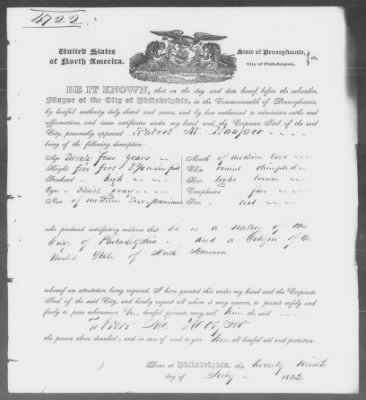 4722
United States
of North America.
State of Pennsylvania,
City of Philadelphia. } ss.
BE IT KNOWN, that on the day and date hereof, before the subscriber,
Mayor of the City of Philadelphia, in the Commonwealth of Pennsylvania,
by lawful authority duly elected and sworn, and by law authorized to administer oaths and
affirmations, and issue certificates under my hand, and the Corporate Seal of the said
City, personally appeared Robert M
being of the following description.
Age twenty four years
Mouth of medium size
Height five feet
Chin round dimpled
Forehead high
Hair light brown
Eyes gray
Complexion fair
Nose of medium size prominent
Face
who produced satisfactory evidence that he is a native of the
City of Philadelphia and a Citizen of the
United States of North America
whereof an attestation being required, I have granted this under my hand and the Corporate
Seal of the said City, and hereby request all whom it may concern, to permit safely and
freely to pass wheresoever his lawful pursuits may call him the said
Robert M
the person above described; and in case of need, to give him all lawful aid and protection.
Done at Philadelphia, this twenty ninth
day of July 1832